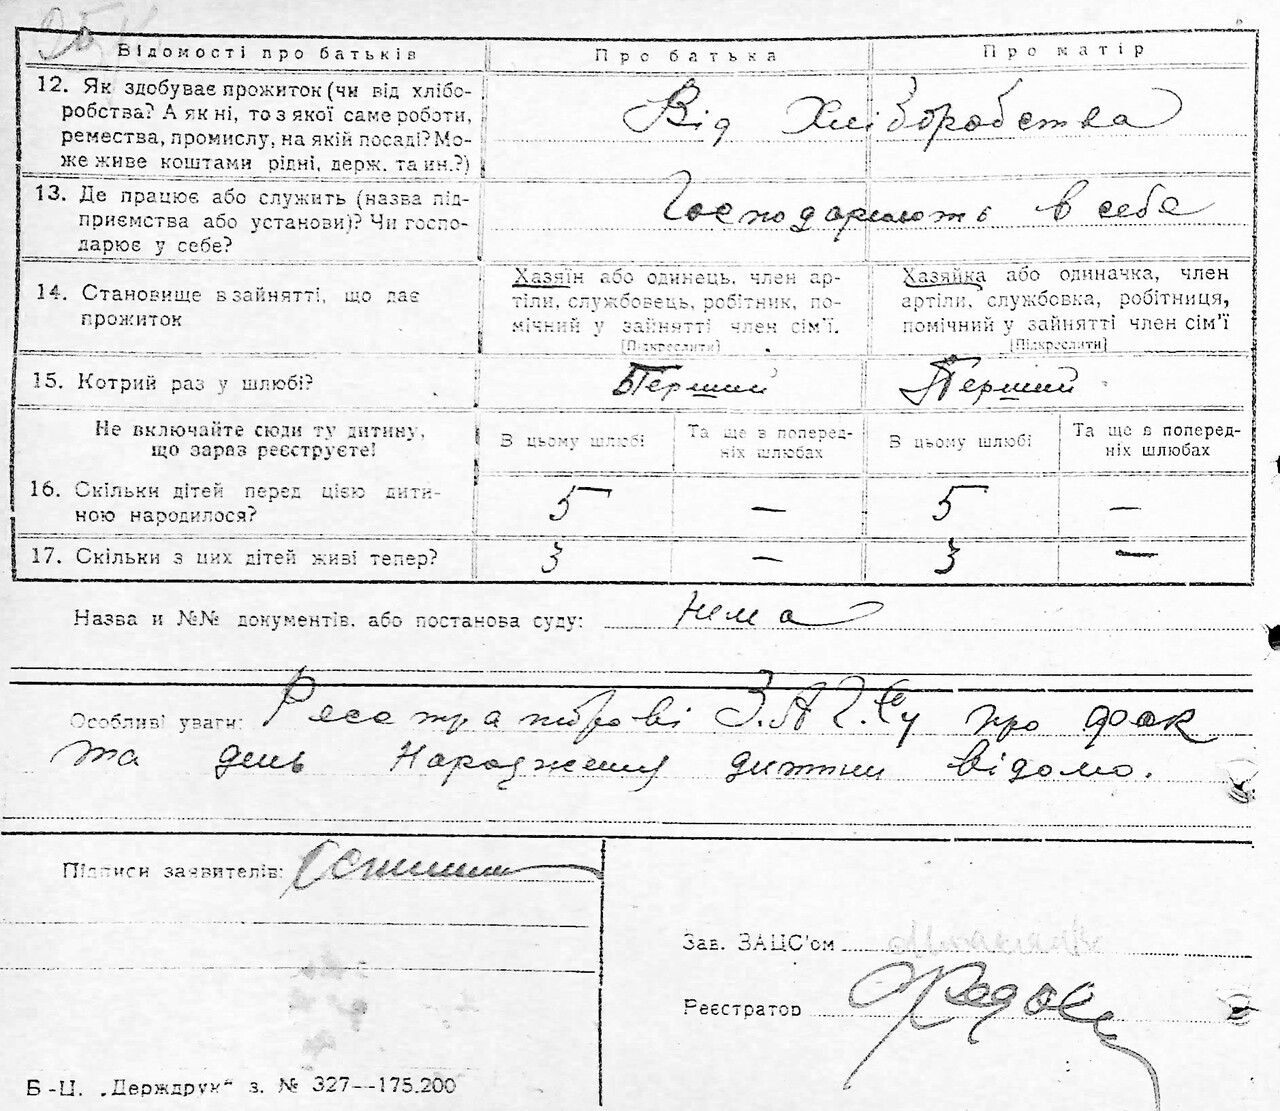 Відомості про батьків
Про батька
Про матір
12. Як здобуває прожиток (чи від хлібо-
робства? А як ні, то з якої саме роботи,
ремества, промислу, на якій посаді? Мо-
же живе коштами рідні, держ. та ин.?)
Від Хліборобства
13. Де працює або служить (назва під-
приємства або установи)? Чи госпо-
дарює у себе?
Господарюють в себе
14. Становище в зайнятті, що дає
прожиток
Хазяїн або одинець, член ар-
тіли, службовець, робітник, по-
мічний у зайнятті член сім'ї.
[Підкреслити]
Хазяйка або одиначка, член
артіли, службовка, робітниця,
помічний у зайнятті член сім'ї
[Підкреслити]
15. Котрий раз у шлюбі?
Перший
Перший
Не включайте сюди ту дитину,
що зараз реєструєте!
В цьому шлюбі
Та ще в поперед-
ніх шлюбах
В цьому шлюбі
Та ще в поперед-
ніх шлюбах
16. Скільки дітей перед цією дити-
ною народилося?
5 — 5 —
17. Скільки з цих дітей живі тепер?
3 — 3 —
Назва и №№ документів, або постанова суду: Нема
Особливі уваги: З.А.Г.Су про фак
та день Народження дитини відомо.
Підписи заявителів:
Зав. ЗАЦС'ом
Реєстратор
Б-Ц. „Держдрук" з. № 327—175.200